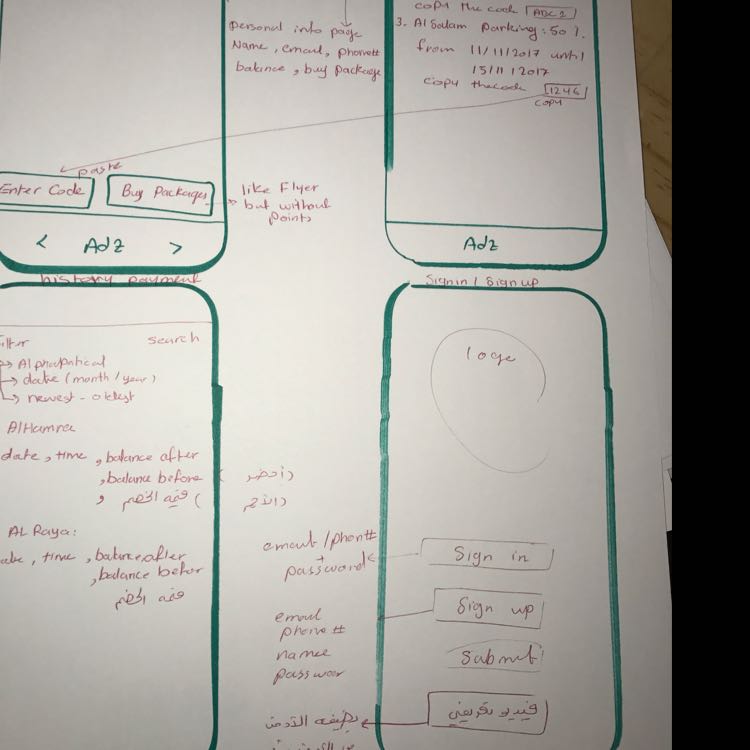 personal into page
Name, email, phone#
balance, buy package
copy the code ABC2
3. AlSalam parking: 50%
from 11/11/2017 until
15/11/2017
copy the code 1246
copy
paste
Enter Code
Buy Packages
like Flyer
but without
points
< Adz >
Adz
history payment
search
Alphapatical
date (month / year)
newest - oldest
AlHamra
date, time, balance after
, balance before (
(أخضر)
و
(
AL Raya:
, time, balance after
, balance befor
Sign in / Sign up
logo
email / phone#
+
password
Sign in
Sign up
email
phone#
name
passwor
Submit
فيديو تعريفي